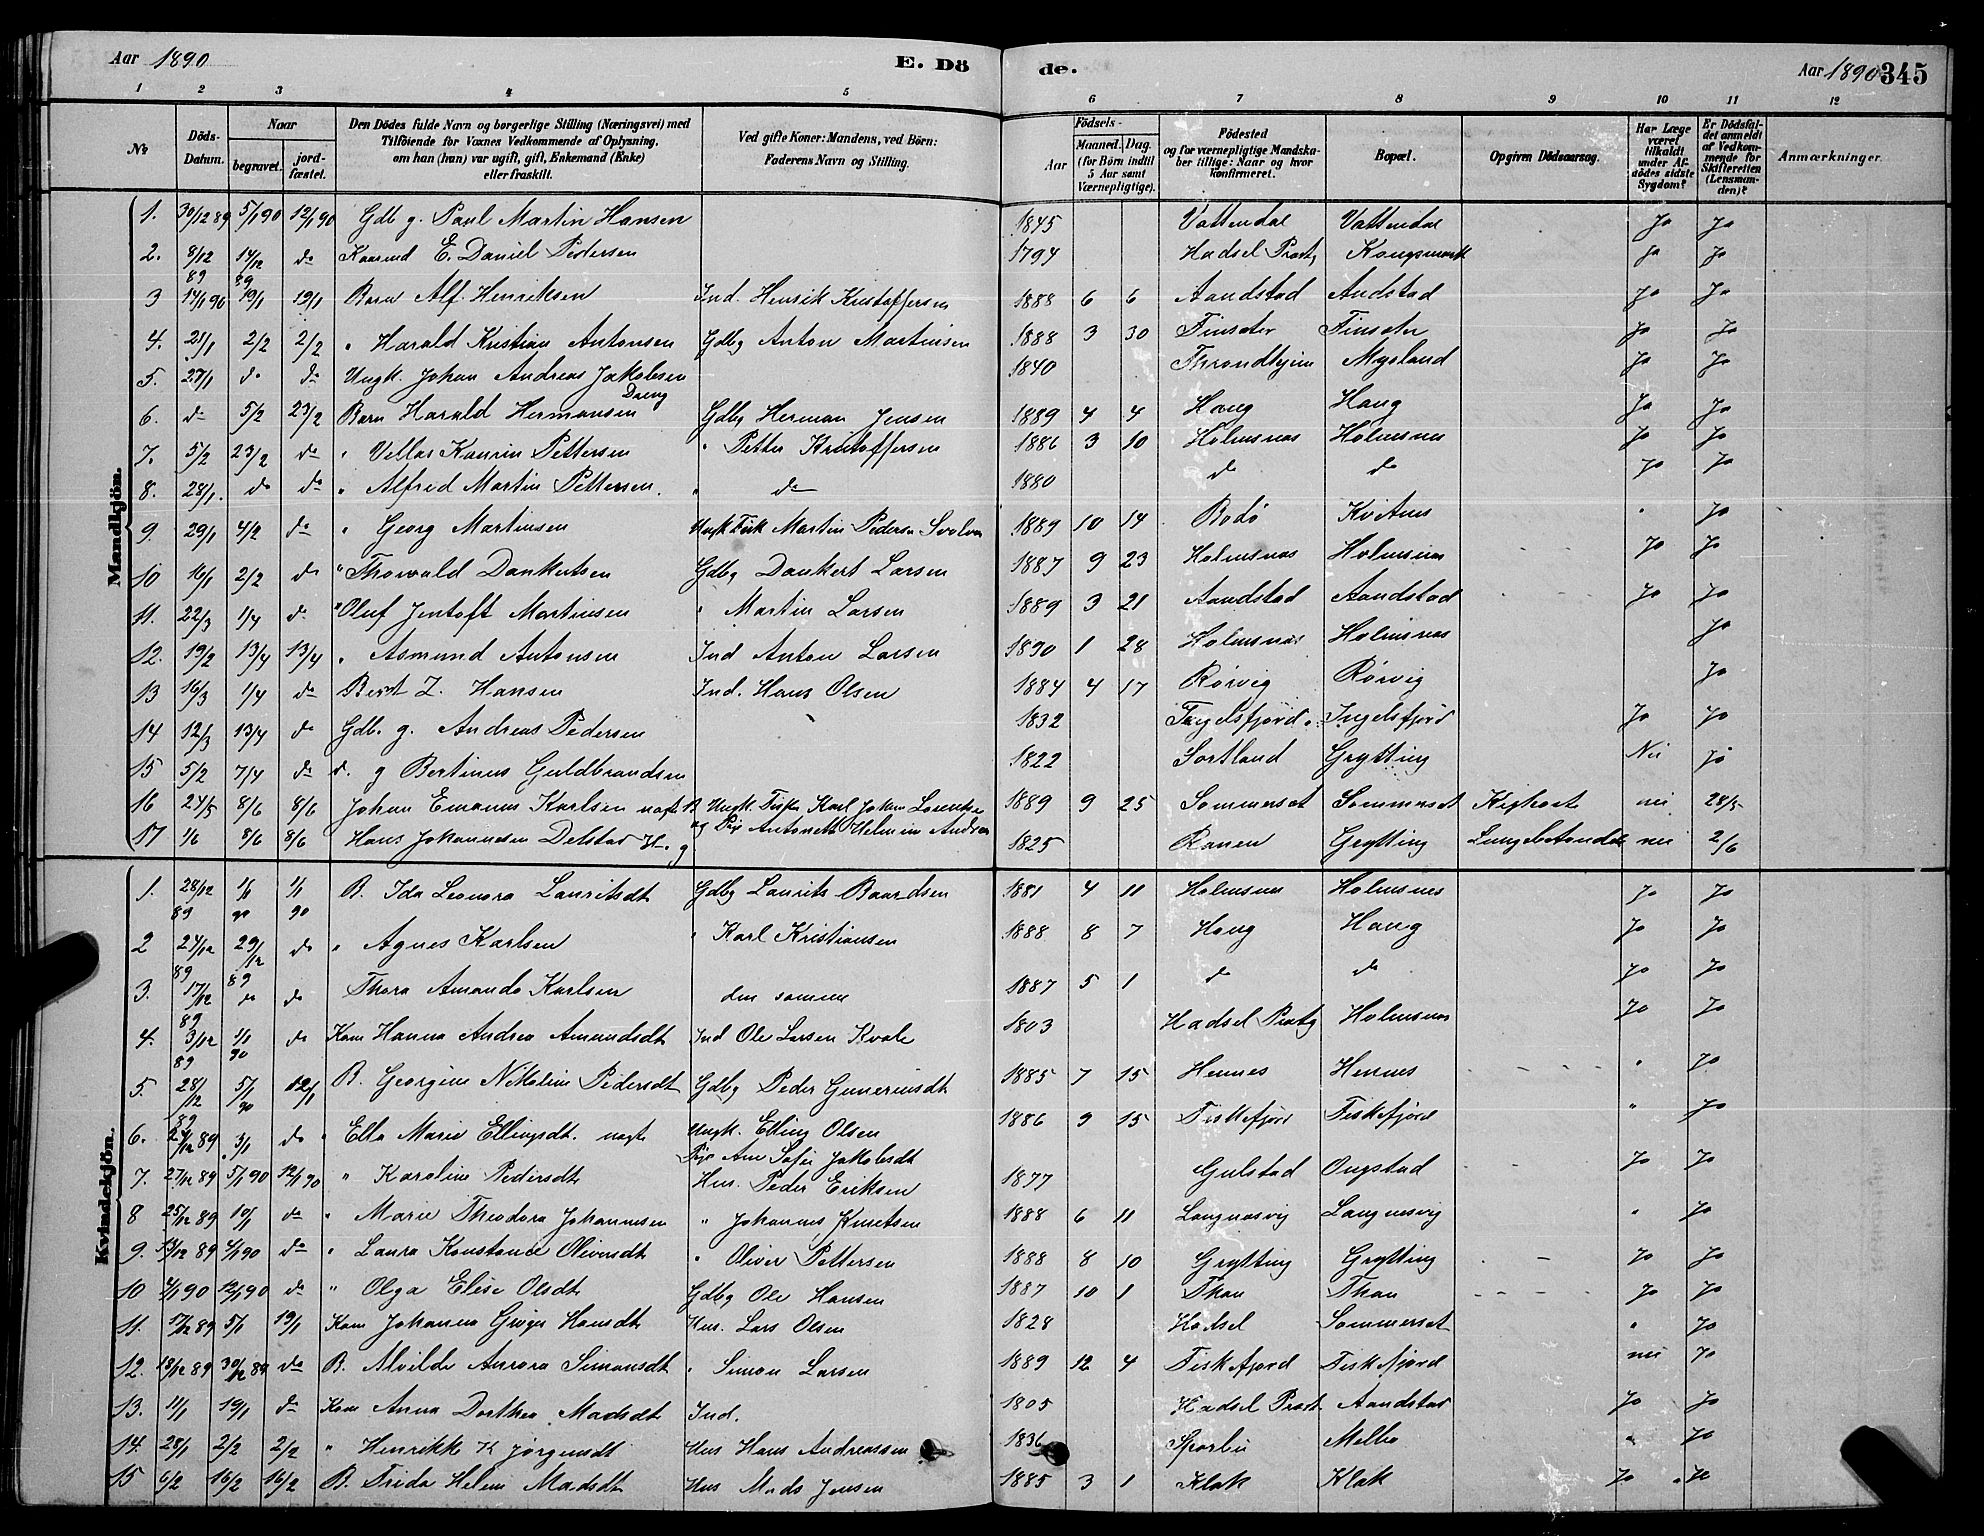 Aar 1890
E. Dö
de.
Aar 1890
345
1 2 3 4 5 6 7 8 9 10 11 12
No.
Döds-Datum.
Naar
begravet.
jord-fæstet.
Den Dödes fulde Navn og borgerlige Stilling (Næringsvei) med Tilföiende for Voxnes Vedkommende af Oplysning, om han (hun) var ugift, gift, Enkemand (Enke) eller fraskilt.
Ved gifte Koner: Mandens, ved Börn: Faderens Navn og Stilling.
Födsels-
Aar
Maaned. Dag.
(for Börn indtil 5 Aar samt Værnepligtige).
Födested og for værnepligtige Mandskaber tillige: Naar og hvor konfirmeret.
Bopæl.
Opgiven Dödsaarsag.
Har Læge været tilkaldt under Afdödes sidste Sygdom?
Er Dödsfaldet anmeldt af Vedkommende for Skifteretten (Lensmanden)?
Anmærkninger.
Mandkjön.
1. 30/12 89 5/1 90 12/1 90 Gdb g. Paul Martin Hansen 1845 Vattendal Vattendal Ja Ja
2. 8/12 89 14/12 89 do Kaarmd E. Daniel Pedersen 1794 Hadsel Prestg Kongsmark ja Ja
3 14/1 90 19/1 19/1 Barn Alf. Henriksen Ind. Henrik Kristoffersen 1888 6 6 Aandstad Andstad Ja Ja
4. 21/1 2/2 2/2 " Harald Kristian Antonsen Gdbg Anton Martinsen 1888 3 30 Finsæter Finsæter Ja Ja
5. 27/1 do do Ungk. Johan Andreas Jakobsen 1840 Throndhjem Mysland Ja Ja
Dreng
6. do 5/2 23/2 Barn Harald Hermansen Gdbg Herman Jensen 1889 4 4 Haug Haug Ja Ja
7. 5/2 23/2 do " Kaurin Pettersen " Petter Kristoffersen 1886 3 10 Holmsnes Holmsnes Ja Ja
8. 28/1. do do " Alfred Martin Pettersen. " do 1880 do do Ja Ja
9. 29/1 4/2 do " Georg Martinsen Ungk Fisk Martin Peders Svolvær 1889 10 14 Bodö Kvitnes " Ja
10 16/1 2/2 do " Thorvald Dankertsen Gdbg Dankert Larsen 1887 9 23 Holmsnes Holmsnes Ja Ja
11. 22/3 1/4 do " Oluf Jentoft Martinsen " Martin Larsen 1889 3 21 Aandstad Aandstad Ja Ja
12. 19/2 13/4 13/4 " Asmund Antonsen Ind Anton Larsen 1890 1 28 Holmsnes Holmsnes Ja
13 16/3 1/4 do Bernt Z. Hansen Ind. Hans Olsen 1884 4 17 Rörvig Rörvig Ja
14 12/3 13/4 do Gdb. g. Andreas Pedersen 1832 Ingelsfjord Ingelsfjord Ja Ja
15 5/2 7/4 do d. g Bertinus Guldbrandsen 1822 Sortland Grytting Nei ja
16 24/5 8/6 8/6 Johan Emanus Karlsen uægte B Ungk. Fisker Karl Johan Lorentsen 1889 9 25 Sommerset Sommerset Kighoste nei 28/5
og Pige Antonette Helmine Andrea
17 1/6 8/6 8/6 Hans Johannesen Delstad H. g 1825 Ranen Grytting Lungebetændelse nei 2/6
Kvindekjön.
1. 28/12 89 1/1 90 1/1 90 B. Ida Leonora Lauritsdt Gdbg Laurits Baardsen 1881 4 11 Holmsnes Holmsnes Ja Ja
2 24/12 89 29/12 89 do " Agnes Karlsen " Karl Kristiansen 1888 8 7 Haug Haug Ja Ja
3. 17/12 89 do do Thora Amanda Karlsen den samme 1887 5 1 do do Ja Ja
4. 3/12 89 1/1 90 do Kone Hanna Andrea Amundsdt Ind Ole Larsen Kvale 1803 Hadsel Prestg Holmsnes Ja Ja
5. 28/12 89 5/1 90 12/1 B. Georgine Nikoline Pedersdt Gdbg Peder 1885 7 15 Hennes Hennes " Ja
6. 24/12 89 3/1 do " Ella Marie Ellingsdt. uægte Ungk. Elling Olsen 1886 9 15 Fiskefjord Fiskefjord " Ja
Pige Ane Sofie Jakobsdt
7. 27/12 89 5/1 90 12/1 90 " Karoline Pedersdt Hus. Peder Eriksen 1877 Gulstad Ongstad Ja Ja
8 25/12 89 10/1 do " Marie Theodora Johannesen " Johannes Knutsen 1888 6 11 Langnesvig Langnesvig " Ja
9. 13/12 89 4/1 90 do " Laura Konstance Oliversdt " Oliver Pettersen 1888 8 10 Grytting Grytting Ja Ja
10 4/1 90 12/1 90 do " Olga Elise Olsdt Gdbg Ole Hansen 1887 10 1 Than Than Ja Ja
11. 17/12 89 5/1 19/1 Kone Johanna Hansdt Hus. Lars Olsen 1828 Hadsel Sommerset " Ja
12. 18/12 89 30/12 89 do B. Alvilde Aurora Simonsdt " Simon Larsen 1889 12 4 Fiskefjord Fiskefjord nei Ja
13. 11/1 19/1 do Kone Anna Dorthea Madsdt Ind. 1805 Hadsel Prest. Aandstad Ja Ja
14. 28/1 2/2 2/2 " Henrikke K Jörgensdt Hus Hans Andreassen 1836 Sparbu Melbo " Ja
15 6/2 16/2 16/2 B. Frida Helene Madsdt Hus Mads Jensen 1885 3 1 Klak Klak Ja Ja